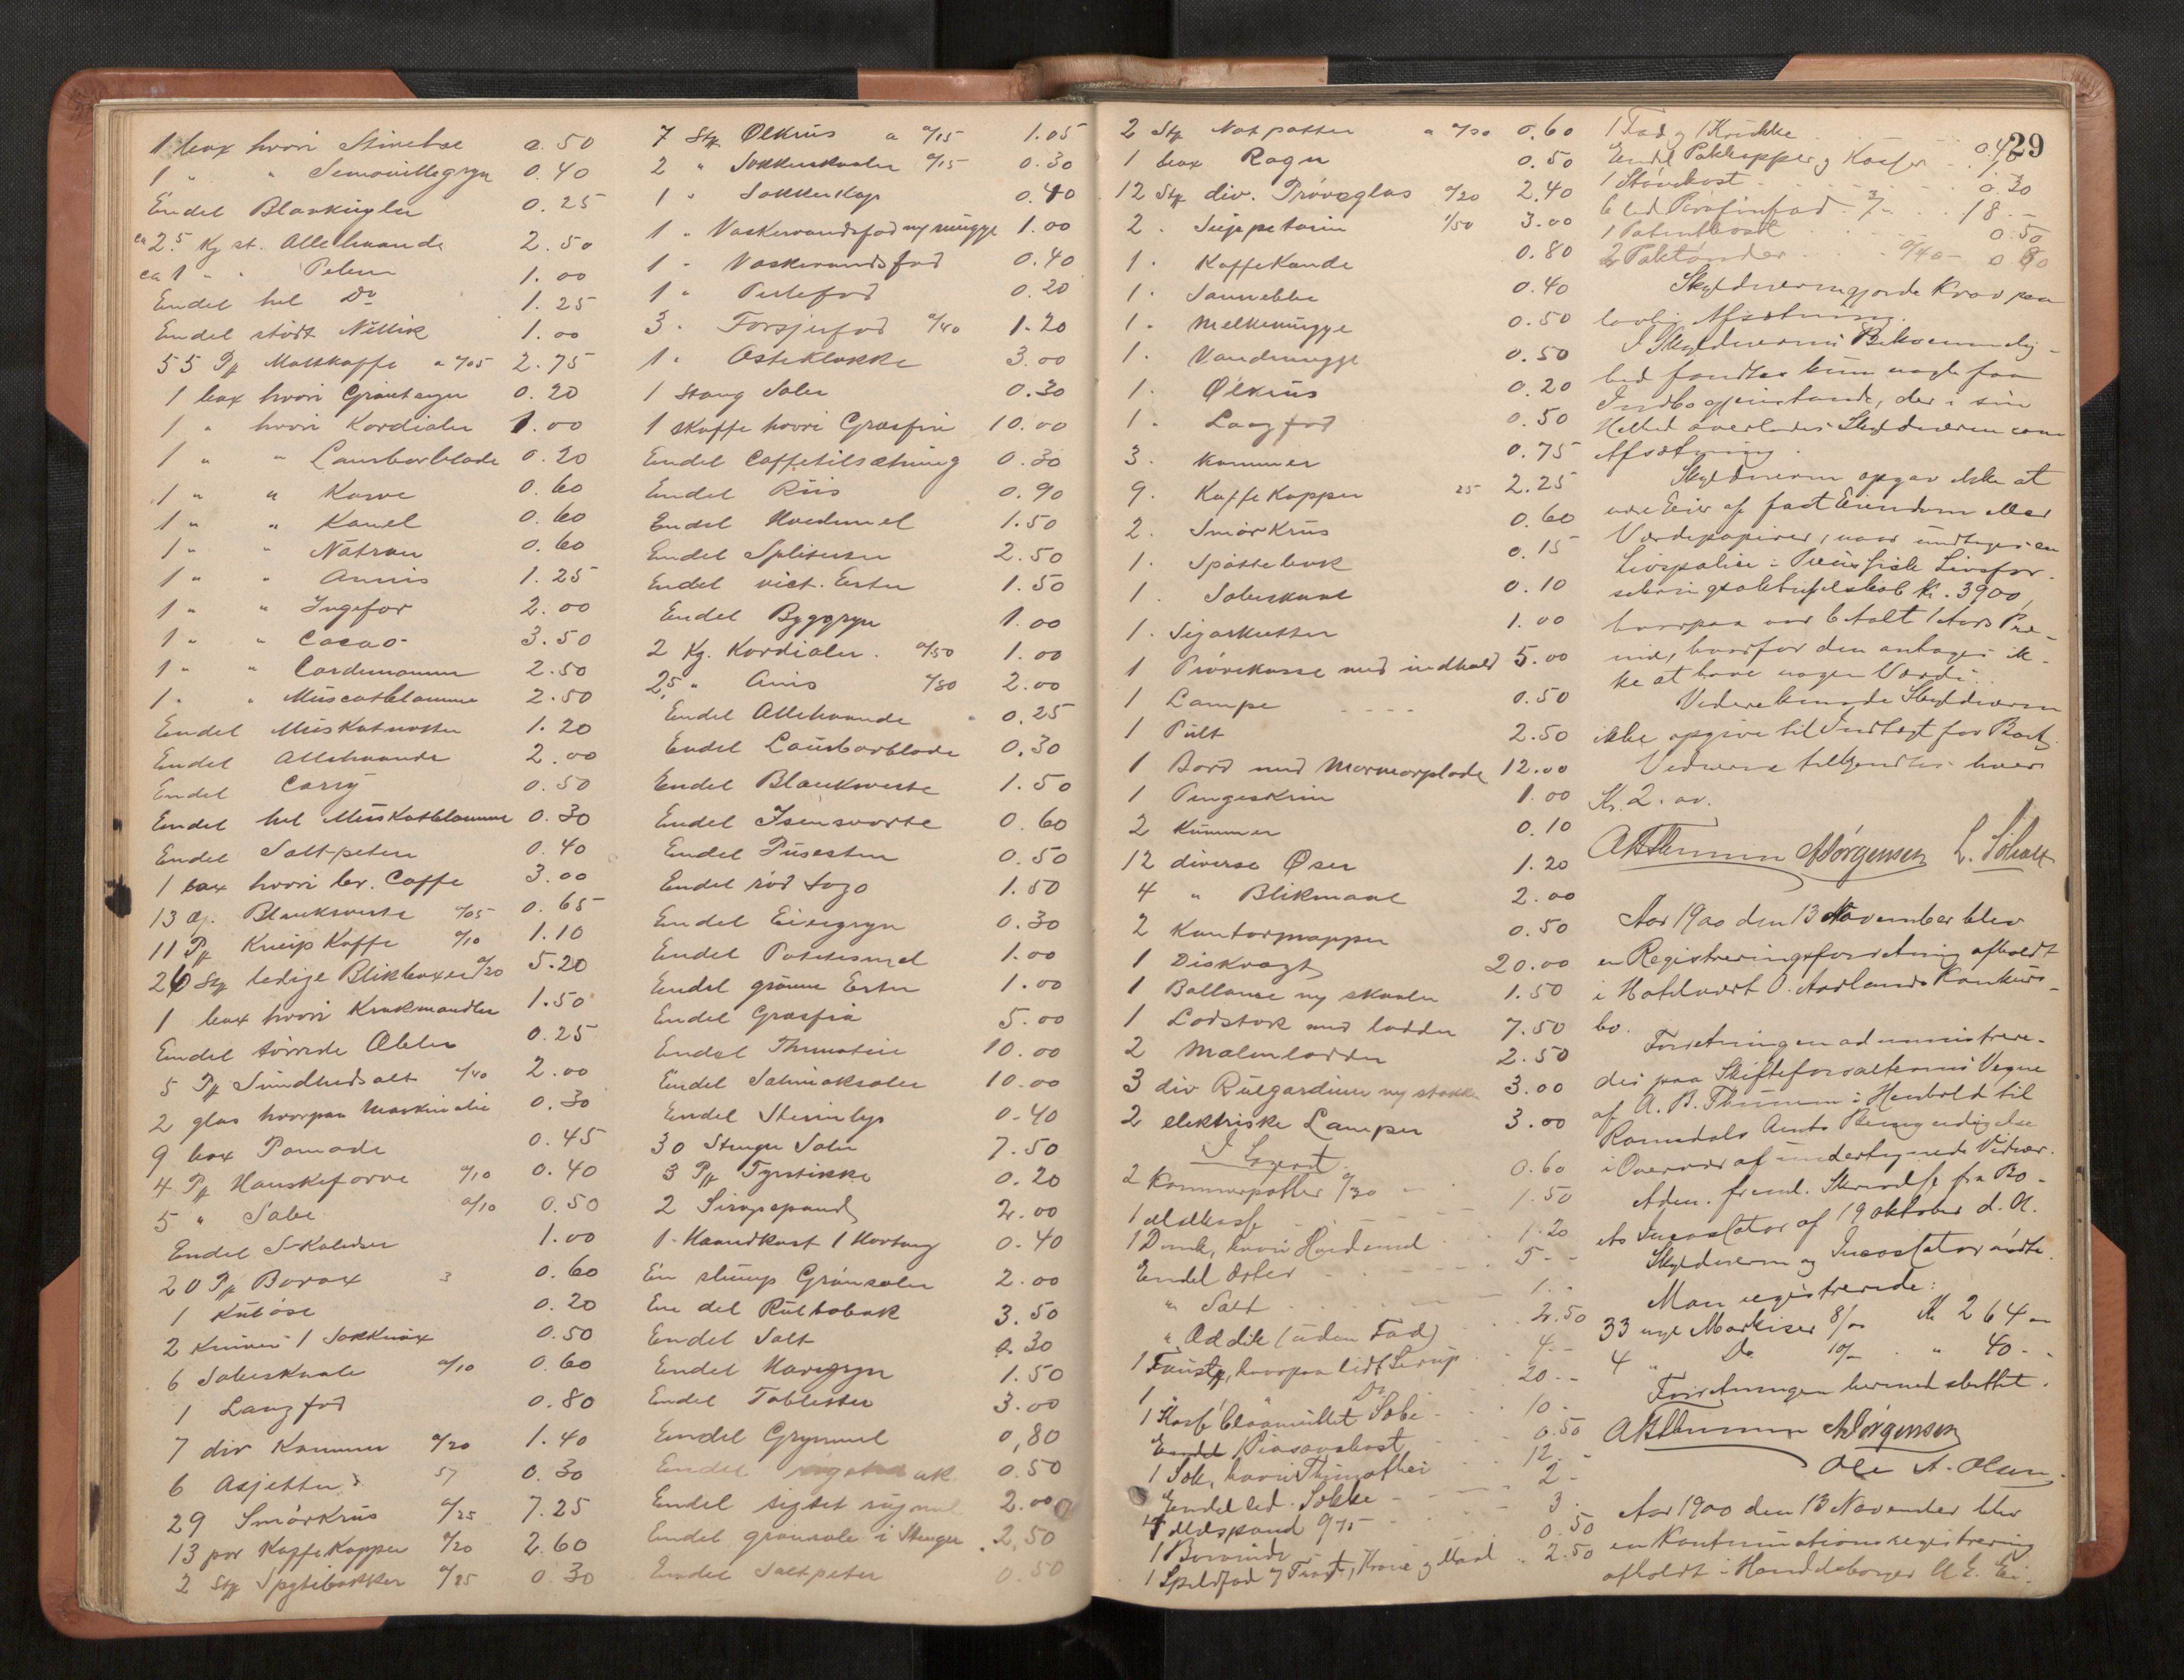 1 box hvori Stivelse 0.50
1 " " Semouillegryn 0.40
Endel Blaakugler 0.25
ca 2.5 Kg st. Allehaande 2.50
ca 1 " " Peber 1.00
Endel hel Do 1.25
Endel stødt Nellik 1.00
55 Pk Maltkaffe a 0/05 2.75
1 box hvori Grøntsager 0.20
1 " hvori Kordialer 1.00
1 " " Laurbærblade 0.20
1 " " Karve 0.60
1 " " Kanel 0.60
1 " " Natron 0.60
1 " " Annis 1.25
1 " " Ingefær 2.00
1 " " Cacao 3.50
1 " " Cardemomme 2.50
1 " " Muscatblomme 2.50
Endel Muskatnøtter 1.20
Endel Allehaande 2.00
Endel Carry 0.50
Endel hel Muskatblomme 0.30
Endel Saltpeter 0.40
1 box hvori br. Caffe 3.00
13 Blanksverte 0/05 0.65
11 Pk Kneip Kaffe 0/10 1.10
26 Stk ledige Blikboxer 0/20 5.20
1 box hvori Krakmandler 1.50
Endel tørrede Æbler 0.25
5 Pk Sundhedsalt 0/40 2.00
2 glas hvorpaa Maskinolie 0.30
9 box Pomade 0.45
4 Pk Hanskefarve 0/10 0.40
5 " Sæbe 0/10 0.50
Endel 1.00
20 Pk Borax 3 0.60
1 Kuløse 0.20
2 Kniver 1 0.50
6 Sæbeskaale 0/10 0.60
1 Langfad 0.80
7 div Kummer 0/20 1.40
6 Asjetter 5/ 0.30
29 Smørkrus 0/25 7.25
13 par Kaffekopper 0/20 2.60
2 Stk Spyttebakker 0/25 0.30
7 Stk Ølkrus a 0/15 1.05
2 " Sukkerskaaler 0/15 0.30
1 " Sukkerkop 0.40
1 " Vaskevandsfad og mugge 1.00
1 " Vaskevandsfad 0.40
1 " Pirtefad 0.20
3 " Farsjerfad 0/40 1.20
1 " Osteklokke 3.00
1 Stang Sæbe 0.30
1 Skuffe hvori Græsfrø 10.00
Endel Caffetilsætning 0.30
Endel Riis 0.90
Endel Hvedemel 1.50
Endel Spliterter 2.50
Endel vict. Erter 1.50
Endel Byggryn 1.00
2 Kg. Kordialer 0/50 1.00
2.5 " Anis 0/80 2.00
Endel Allehaande 0.25
Endel Laurbærblade 0.30
Endel Blanksverte 1.50
Endel Isensvarte 0.60
Endel Pudsesten 0.50
Endel rød Sago 1.50
Endel Eisegryn 0.30
Endel Potetesmel 1.00
Endel grønne Erter 1.00
Endel Græsfrø 5.00
Endel Thimotein 10.00
Endel Salmiaksæbe 10.00
Endel Sterinlys 0.40
30 Stenger Sæbe 7.50
3 Pk Fyrstikke 0.20
2 Sirupspand 2.00
1 Haandkost 1 0.40
En slump Grønsæbe 2.00
En del Rultobak 3.50
Endel Salt 0.30
Endel Havregryn 1.50
Endel Tobletter 3.00
Endel Grynmel 0,80
Endel 0.50
Endel sigtet rugmel 2.00
Endel grønsæbe i Stenger 2,50
Endel Saltpeter 0.50
2 Stk Natpotter a 0/30 0.60
1 box Rogn 0.50
12 Stk div. Prøveglas 0/20 2.40
2 " Suppeterin 1/50 3.00
1 " Kaffekande 0.80
1 " 0.40
1 " Melkemugge 0.50
1 " Vandmugge 0.50
1 " Ølkrus 0.20
1 " Langfad 0.50
3 " Kummer 0.75
9 " Kaffekopper 25 2.25
2 " Smørkrus 0.60
1 " Spøttebak 0.15
1 " Sæbeskaal 0.10
1 " Sigarkutter 1.00
1 Prøvekasse med indhold 5.00
1 Lampe 0.50
1 Pult 2.50
1 Bord med Marmorplade 12.00
1 Pengeskrin 1.00
2 Kummer 0.10
12 diverse Øser 1.20
4 " Blikmaal 2.00
2 Kontormapper 0.50
1 Diskvægt 20.00
1 Ballance og skaaler 1.50
1 Lodstok med lodder 7.50
2 Malmlodder 2.50
3 div Rulgardiner og stokke 3.00
2 elektriske Lamper 3.00
2 Kammerpotter 0/30 0.60
1 1.50
1 Dunk, hvori Hvedemel 1.20
Endel Erter 5 -
" Salt 1 -
" Eddik (uden Fad) 2.50
1 Fustg, hvorpaa lidt Sirup 4 -
1 " Do 20 -
1 Kasse blaamillet Sæbe 10 -
1 Piasavakost 0.50
1 Sæk, hvori Thimothei 12 -
Endel led. Sække 2 -
4 Melspand 0/75 3 -
1 0.50
1 Spildfad og Fust, Krane og Maal 2.50
29
1 Fad og 1 Krukke 0.40
Endel Pakkopper og Kasser 1 -
1 Støvekost 0.20
6 led Parafinfad 3/- 18 -
1 Patentkost 0.50
2 Paktønder 0/40 0 80
Skyldneren gjorde Krav paa
lovlig Afsætning.
I Skyldnerens Bekvemmelig-
hed fandtes kun nogle faa
Indbogjenstande, der i sin
Helhed overlodes Skyldneren som
Afsætning.
Skyldneren opgav ikke at
være Eier af fast Eiendom eller
Værdipapirer, naar undtages en
Livspolice i Preussiske Livsfor-
sikringsaktieselskab Kr. 3900,
hvorpaa var betalt 1 Aars Præ-
mie, hvorfor den antages ik-
ke at have nogen Værdi.
Videre kunde Skyldneren
ikke opgive til Indtægt for Boet.
Vidnerne tilkjendtes hver
Kr. 2. ov.
AB Thumm AJørgensen L. Soholt
Aar 1900 den 13 November blev
en Registreringsforretning afholdt
i Hotelvært O. Aarlands Konkurs-
bo.
Forretningen administrere-
des paa Skifteforvalterens Vegne
af A. B. Thumm i Henhold til
Romsdals Amts Bemyndigelse
i Overvær af undertegnede Vidner.
Adm. freml. Skrivelse fra Bo-
ets Incassator af 19 oktober d. A.
Skyldneren og Incassator mødte.
Man registrerede:
33 nye Markiser 8/00 Kr 264 -
4 " Do 10/- " 40 -
Forretningen hermed sluttet.
AB Thumm AJørgensen
Ole A. Olsen.
Aar 1900 den 13 November blev
en Kontinuationsregistrering
afholdt i Handelsborger A. E. Ei-